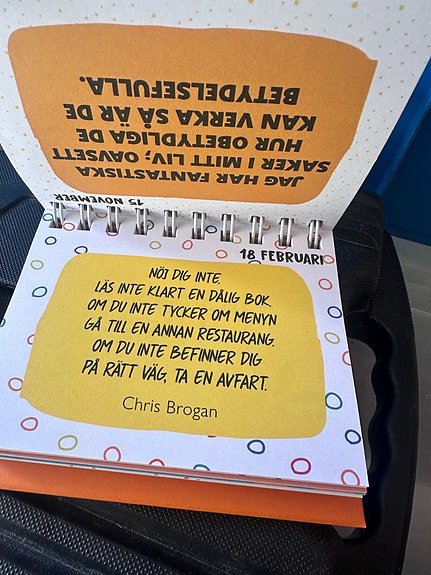 JAG HAR FANTASTISKA
SAKER I MITT LIV, OAVSETT
HUR OBETYDLIGA DE
KAN VERKA SÅ ÄR DE
BETYDELSEFULLA.
15 NOVEMBER
18 FEBRUARI
NÖJ DIG INTE.
LÄS INTE KLART EN DÅLIG BOK.
OM DU INTE TYCKER OM MENYN
GÅ TILL EN ANNAN RESTAURANG.
OM DU INTE BEFINNER DIG
PÅ RÄTT VÄG, TA EN AVFART.
Chris Brogan